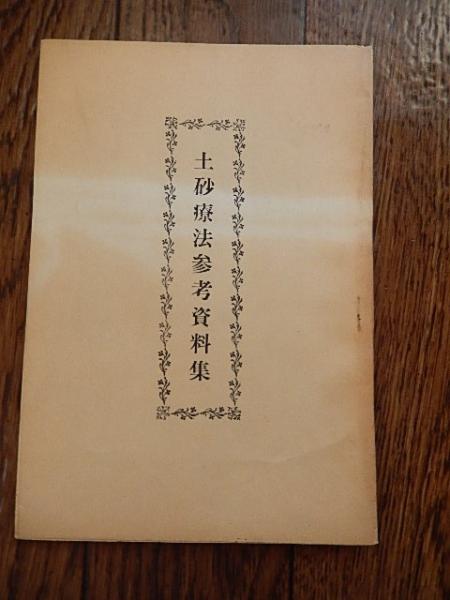 土砂療法参考資料集